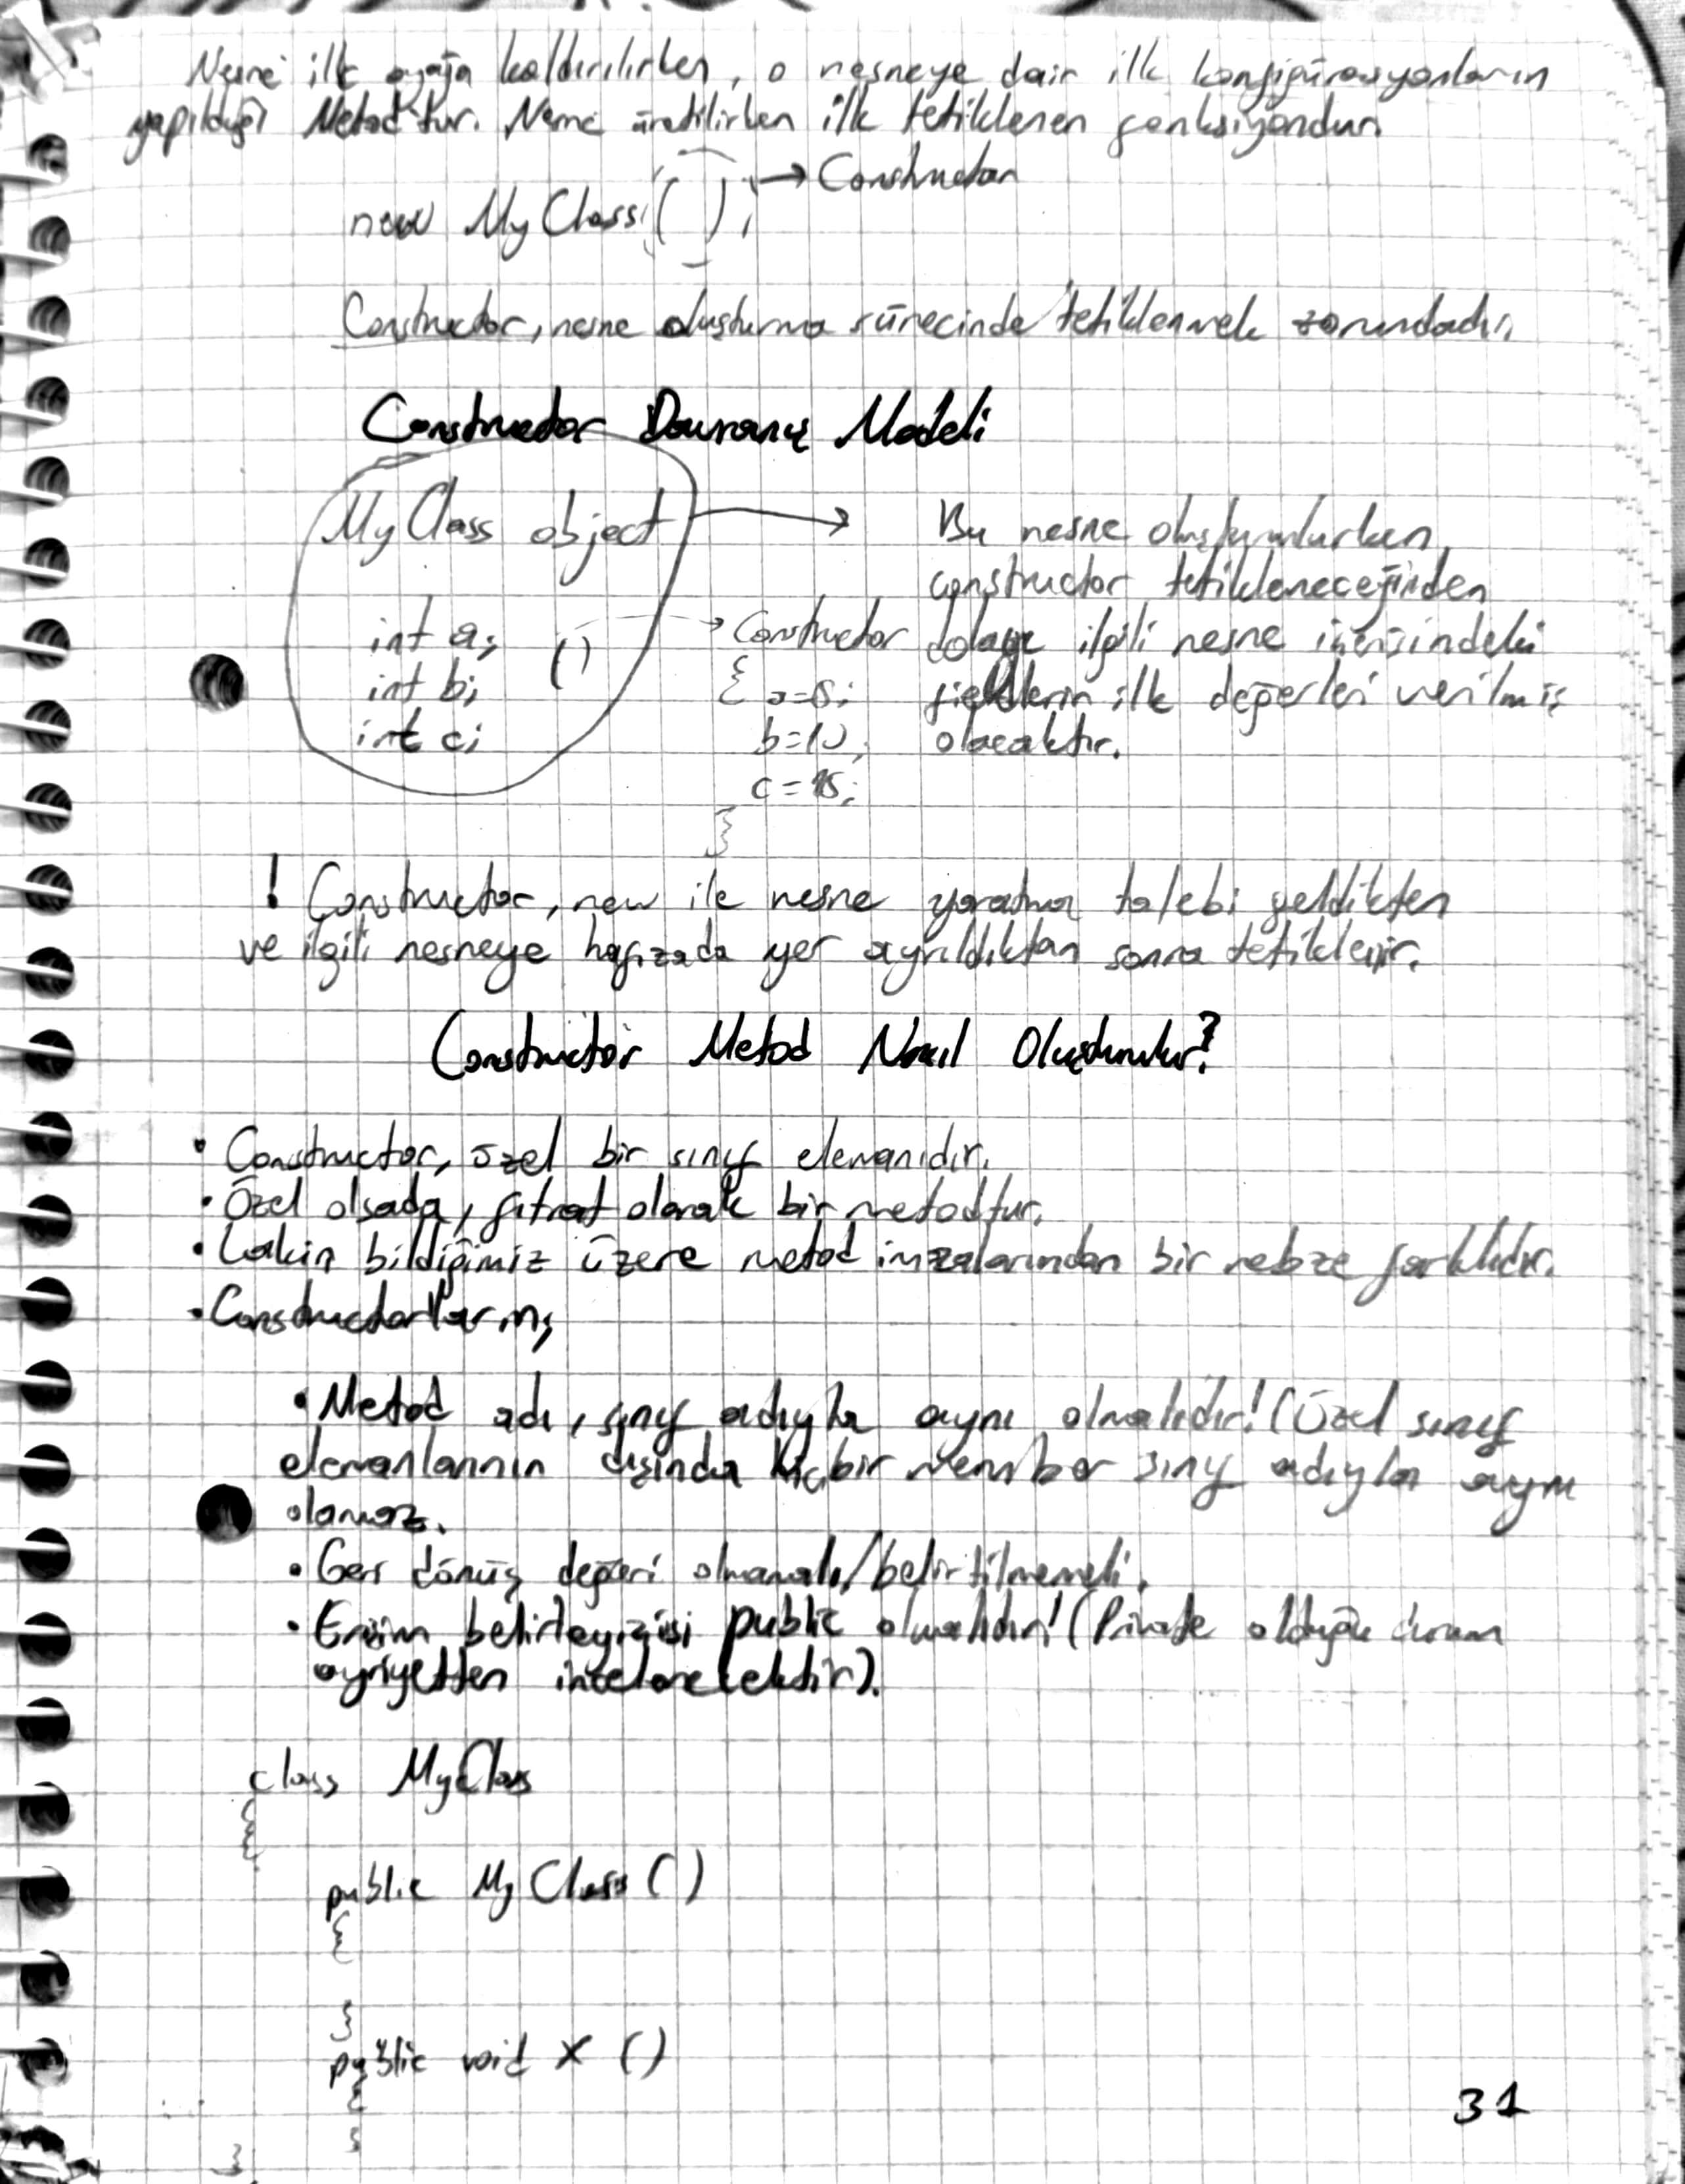 Nesne ilk ayağa kaldırılırken, o nesneye dair ilk konfigürasyonların
yapıldığı Metod'tur. Nesne üretilirken ilk tetiklenen fonksiyondur.
new MyClass( ); → Constructor
Constructor, nesne oluşturma sürecinde tetiklenmek zorundadır.
Constructor Davranış Modeli
MyClass object → Bu nesne oluşturulurken
constructor tetikleneceğinden
int a; () → Constructor dolayı ilgili nesne içerisindeki
int b; { a=5; fieldlerin ilk değerleri verilmiş
int c; b=10; olacaktır.
c=15;
}
! Constructor, new ile nesne yaratma talebi geldikten
ve ilgili nesneye hafızada yer ayrıldıktan sonra tetiklenir.
Constructor Metod Nasıl Oluşturulur?
• Constructor, özel bir sınıf elemanıdır.
• Özel olsada, fıtrat olarak bir metodtur.
• Lakin bildiğimiz üzere metod imzalarından bir nebze farklıdır.
• Constructorların;
• Metod adı, sınıf adıyla aynı olmalıdır! (Özel sınıf
elemanlarının dışında hiçbir member sınıf adıyla aynı
olamaz.
• Geri dönüş değeri olmamalı/belirtilmemeli.
• Erişim belirleyicisi public olmalıdır! (Private olduğu durum
ayriyetten incelenecektir).
class MyClass
{
public MyClass ()
{
}
public void X ()
{
}
}
31